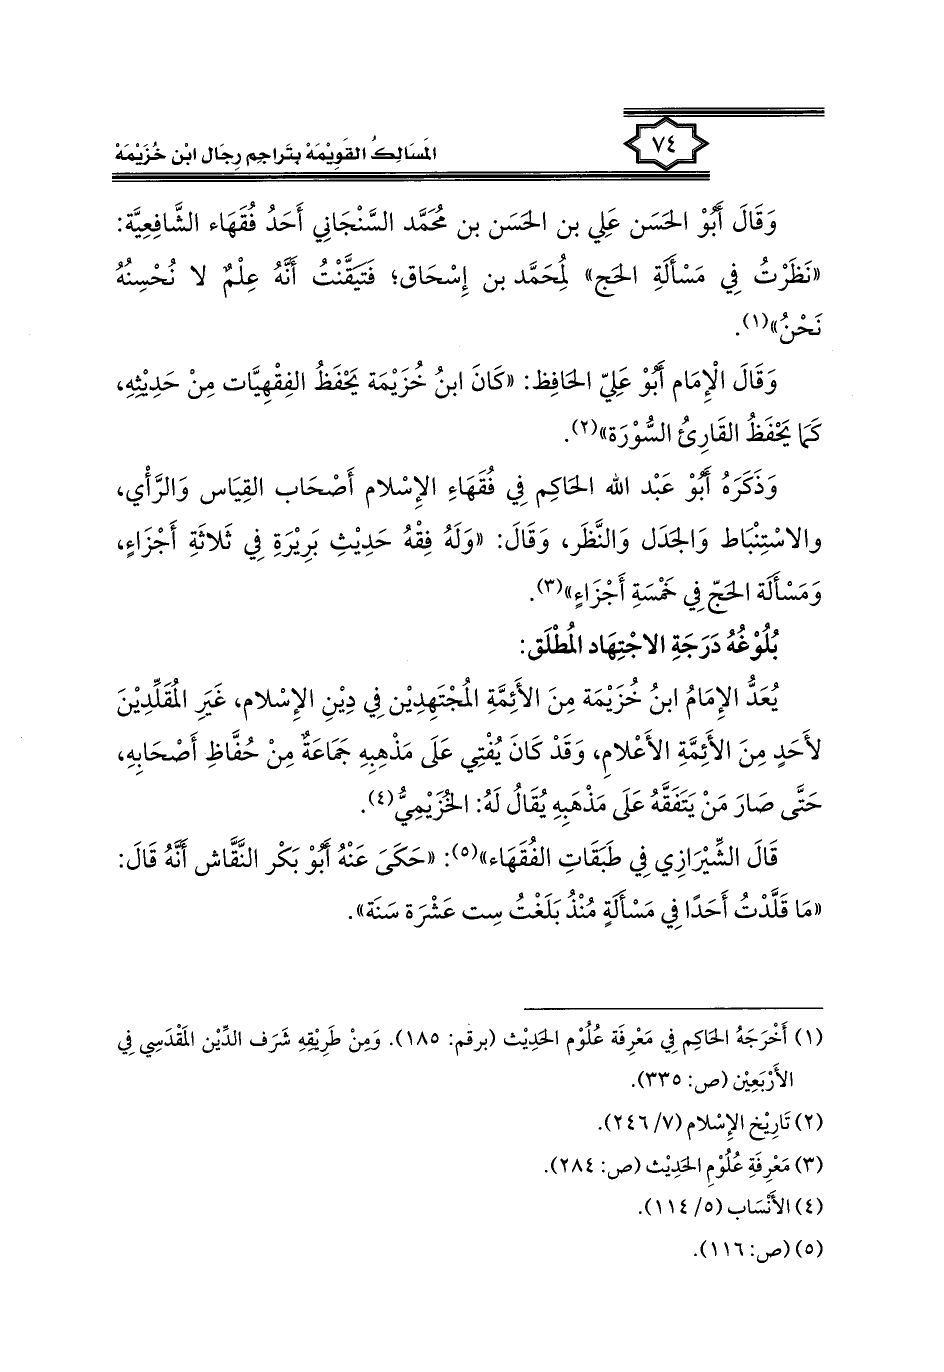 المَسَالِكُ القَوِيْمَة بِتَراجِم رِجَال ابْن خُزَيْمَة
٧٤
وَقَالَ أَبُوْ الحَسَن عَلِي بن الحَسَن بن مُحَمَّد السَّنْجَاني أَحَدُ فُقَهَاء الشَّافِعِيَّة:
«نَظَرْتُ فِي مَسْأَلَةِ الحَج» لِمُحَمَّد بن إِسْحَاق؛ فَتَيَقَّنْتُ أَنَّهُ عِلْمٌ لا نُحْسِنُهُ
نَحْنُ»(١).
وَقَالَ الْإِمَام أَبُوْ عَلِيّ الحَافِظ: «كَانَ ابنُ خُزَيْمَة يَحْفَظُ الفِقْهِيَّات مِنْ حَدِيْثِهِ،
كَمَا يَحْفَظُ القَارِئُ السُّوْرَة»(٢).
وَذَكَرَهُ أَبُوْ عَبْد الله الحَاكِم فِي فُقَهَاءِ الإِسْلام أَصْحَاب القِيَاس وَالرَّأْي،
والاسْتِنْبَاط وَالجَدَل وَالنَّظَر، وَقَالَ: «وَلَهُ فِقْهُ حَدِيْثِ بَرِيْرَةِ فِي ثَلاثَةِ أَجْزَاءٍ،
وَمَسْأَلَة الحَجّ فِي خَمْسَةِ أَجْزَاءٍ»(٣).
بُلُوْغُهُ دَرَجَةِ الاجْتِهَاد المُطْلَق:
يُعَدُّ الإِمَامُ ابنُ خُزَيْمَة مِنَ الأَئِمَّةِ المُجْتَهِدِيْن فِي دِيْنِ الإِسْلام، غَيَرَ المُقَلِّدِيْنَ
لأَحَدٍ مِنَ الأَئِمَّةِ الأَعْلامِ، وَقَدْ كَانَ يُفْتِي عَلَى مَذْهِبِهِ جَمَاعَةٌ مِنْ حُفَّاظِ أَصْحَابِهِ،
حَتَّى صَارَ مَنْ يَتَفَقَّهُ عَلَى مَذْهَبِهِ يُقَالُ لَهُ: الخُزَيْمِيُّ(٤).
قَالَ الشِّيْرَازِي فِي طَبَقَاتِ الفُقَهَاء»(٥): «حَكَىَ عَنْهُ أَبُوْ بَكْر النَّقَّاش أَنَّهُ قَالَ:
«مَا قَلَّدْتُ أَحَدًا فِي مَسْأَلَةٍ مُنْذُ بَلَغْتُ ست عَشْرَة سَنَة».
(١) أَخْرَجَهُ الحَاكِم فِي مَعْرِفَة عُلُوْم الحَدِيْث (برقم: ١٨٥). وَمِنْ طَرِيْقِهِ شَرَف الدِّيْن المَقْدَسِي فِي
الأَرْبَعِيْن (ص: ٣٣٥).
(٢) تَارِيْخ الإِسْلام (٧/ ٢٤٦).
(٣) مَعْرِفَةِ عُلُوْمِ الحَدِيْث (ص: ٢٨٤).
(٤) الأَنْسَاب (٥/ ١١٤).
(٥) (ص: ١١٦).